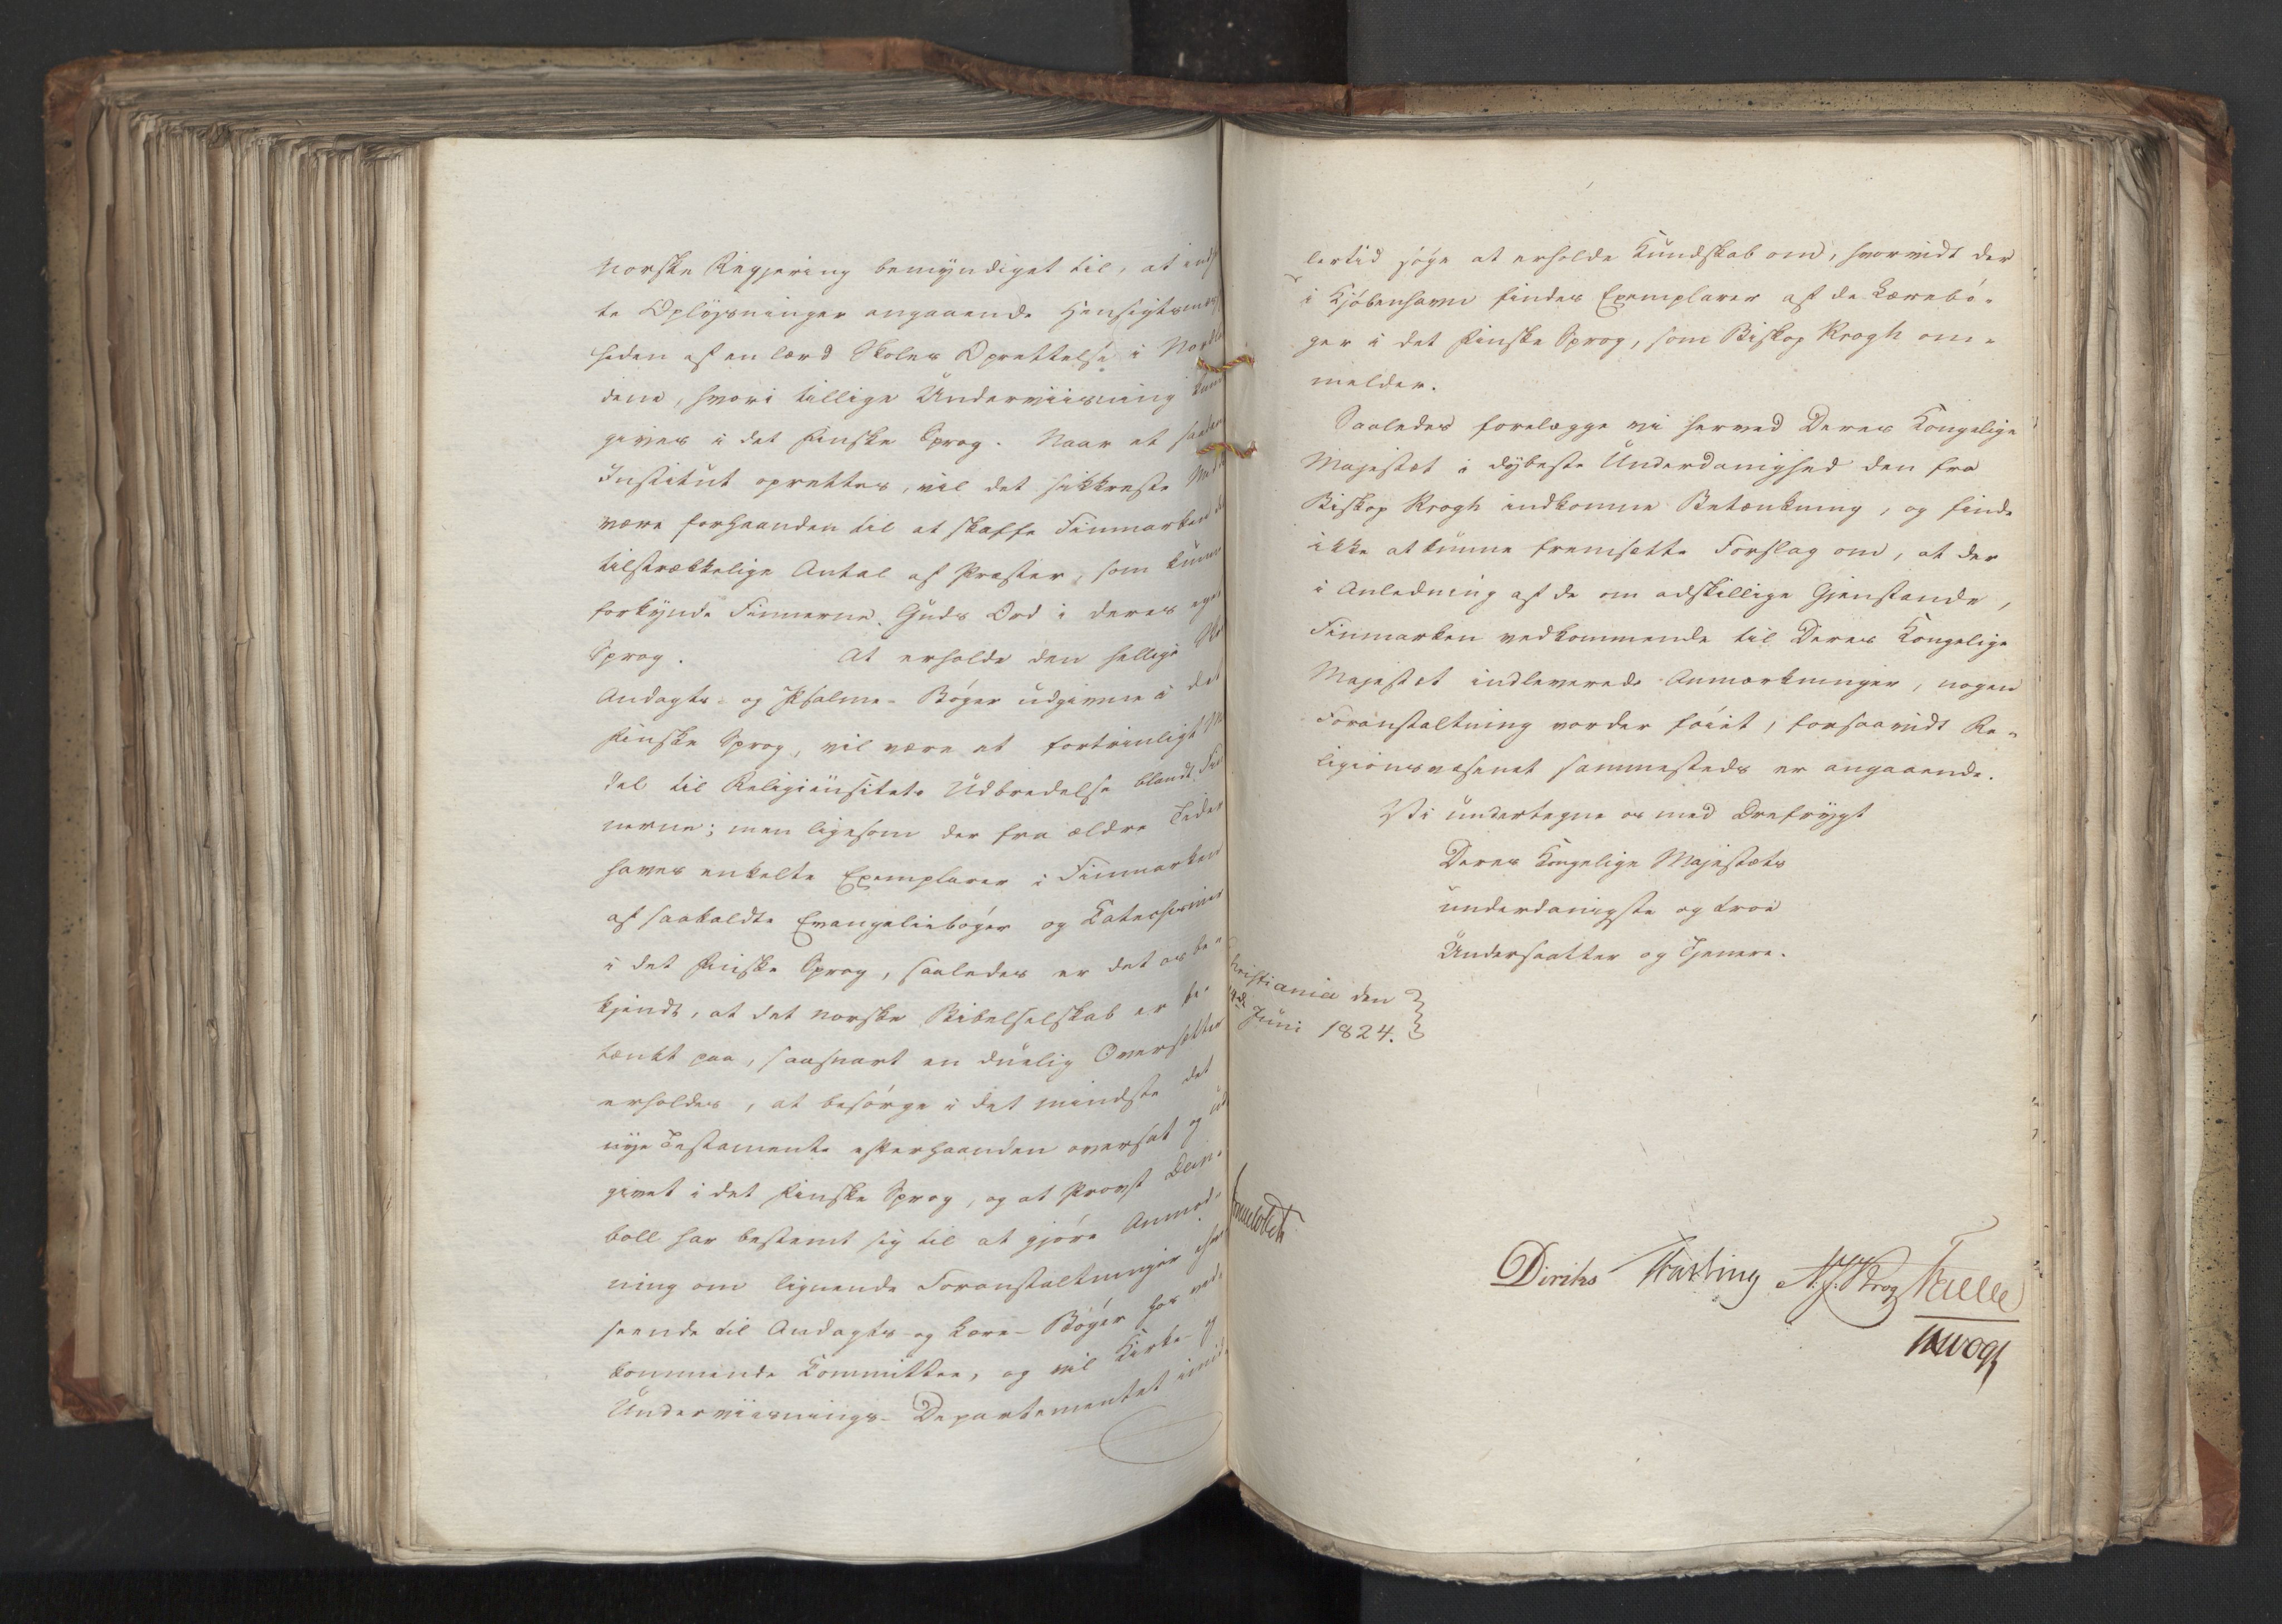 norske Regjering bemyndiget til, at indh
te Oplysninger angaaende Hensigtsmæs
heden af en lærd Skoles Oprettelse i Nordlan
dene, hvori tillige Underviisning kunde
gives i det finske Sprog. Naar et saadant
Institut oprettes, vil det sikkreste Mid
være forhaanden til at skaffe Finmarken
tilstrækkelige Antal af Præster, som kunne
forkynde Finnerne Guds Ord i deres eget
Sprog. At erholde den hellige
Andagts- og Psalme-Bøger udgivne i det
finske Sprog, vil være et fortrinligt Mi
del til Religiøsitets Udbredelse blandt Fin
nerne; men ligesom der fra ældre Tider
haves enkelte Exemplarer i Finmarken
af saakaldte Evangeliebøger og Katechismer
i det finske Sprog, saaledes er det os be=
kjendt, at det norske Bibelselskab er be=
tænkt paa, saasnart en duelig Oversætter
erholdes, at besørge i det mindste det
nye Testamente efterhaanden oversat og ud
givet i det finske Sprog, og at Provst Dein=
boll har bestemt sig til at gjøre Anmod=
ning om lignende Foranstaltninger hen
seende til Andagts- og Lære-Bøger hos ved=
kommende Committee, og vil Kirke- og
Underviisnings-Departementet imid=
lertid søge at erholde Kundskab om, hvorvidt der
i Kjøbenhavn findes Exemplarer af de Lærebø=
ger i det finske Sprog, som Biskop Krogh om=
melder.
Saaledes forelægge vi herved Deres Kongelige
Majestæt i dybeste Underdanighed den fra
Biskop Krogh indkomne Betænkning, og finde
ikke at kunne fremsætte Forslag om, at der
i Anledning af de om adskillige Gjenstande,
Finmarken vedkommende til Deres Kongelige
Majestæt indleverede Anmærkninger, nogen
Foranstaltning vorder føiet, forsaavidt Re=
ligionsvæsenet sammesteds er angaaende.
Vi undertegne os med Ærefrygt
Deres Kongelige Majestæts
underdanigste og troe
Undersaatter og Tjenere.
Christiania den
14de Juni 1824.
Diriks Krog Treschow